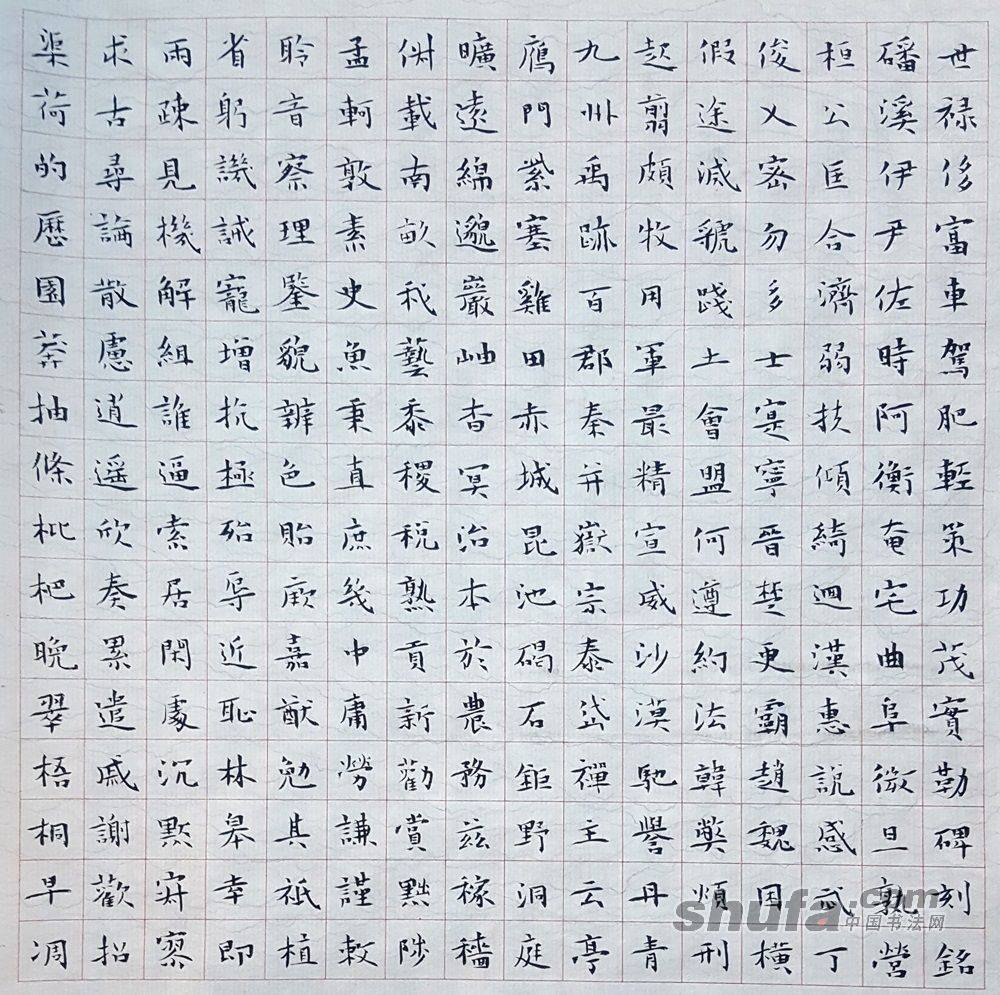 世禄侈富車駕肥輕策功茂實勒碑刻銘
磻溪伊尹佐時阿衡奄宅曲阜微旦孰營
桓公匡合濟弱扶傾綺迴漢惠說感武丁
俊乂密勿多士寔寧晉楚更霸趙魏困横
假途滅虢踐土會盟何遵約法韓弊煩刑
起翦頗牧用軍最精宣威沙漠馳譽丹青
九州禹跡百郡秦并嶽宗泰岱禪主云亭
鴈門紫塞雞田赤城昆池碣石鉅野洞庭
曠遠綿邈巖岫杳冥治本於農務兹稼穡
俶載南畝我藝黍稷稅熟貢新勸賞黜陟
孟軻敦素史魚秉直庶幾中庸勞謙謹敕
聆音察理鑒貌辨色貽厥嘉猷勉其祗植
省躬譏誡寵增抗極殆辱近恥林皋幸即
兩疎見機解組誰逼索居閑處沉默寂寥
求古尋論散慮逍遥欣奏累遣慼謝歡招
渠荷的歷園莽抽條枇杷晚翠梧桐早凋
shufa.com
中国书法网